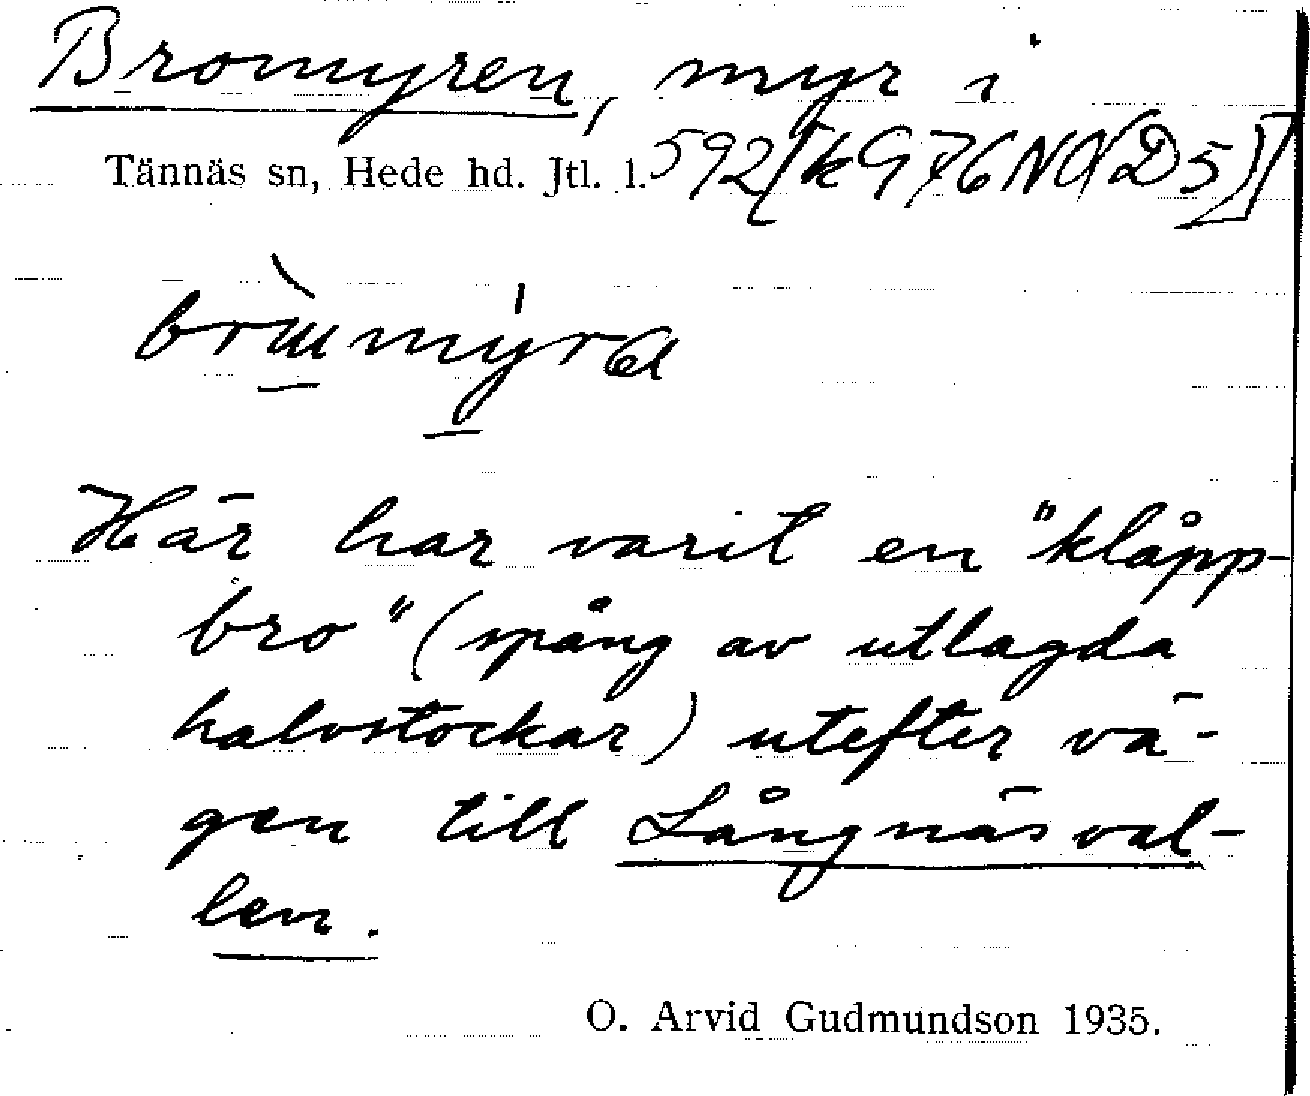 Bromyren, myr i
Tännäs sn, Hede hd. Jtl. l. 592[kG76NO(D5)]
Här har varit en "klåpp-
bro" (spång av utlagda
halvstockar) utefter vä-
gen till Långnäsval-
len.
O. Arvid Gudmundson 1935.